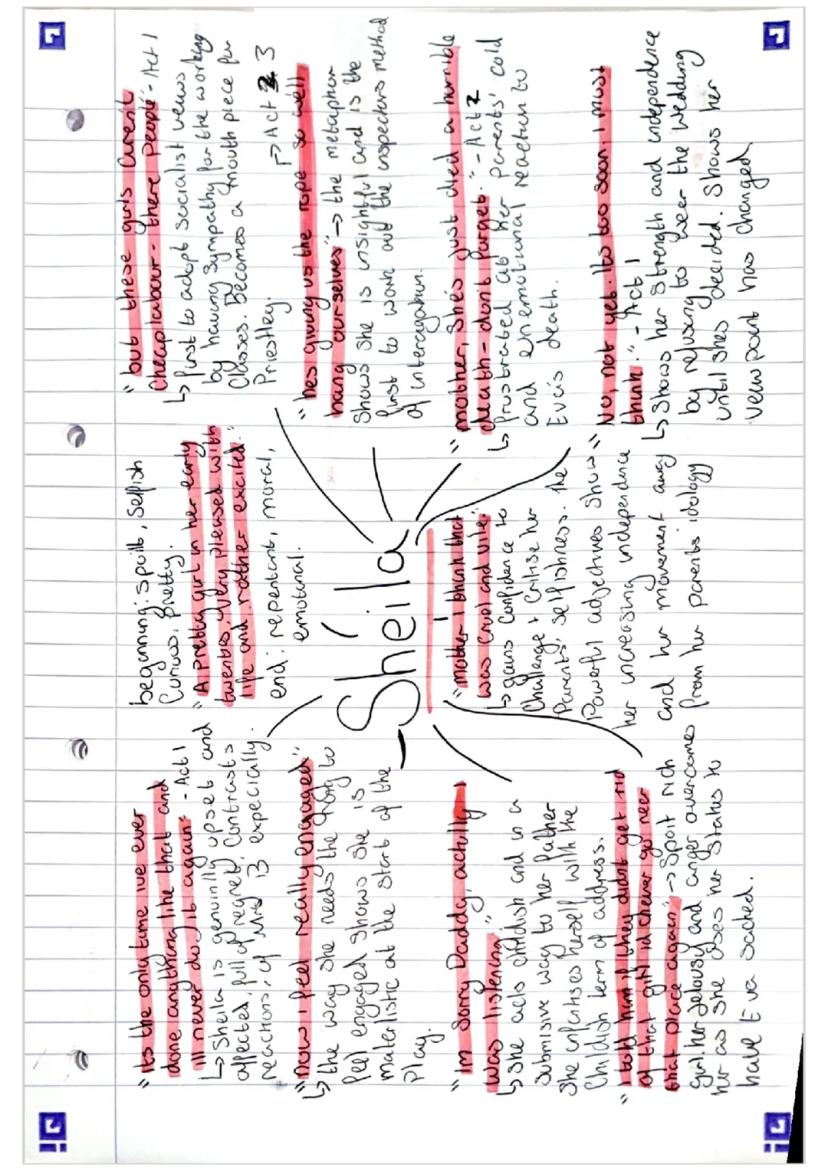 "its the only time ive ever
done anything like that and
ill never do it again" - Act 1
↳ Sheila is genuinly upset and
affected, full of regret. Contrasts
reactions of Mrs B expecially.
"now i feel really engaged"
↳ the way she needs the ring to
feel engaged shows she is
materlistic at the start of the
play.
"im sorry Daddy, actually i
was listening"
↳ She acts childish and in a
submisive way to her father
She infantises herself with the
Childish term of address.
"i told him if they didnt get rid
of that girl id never go neer
that place again" → Spoilt rich
girl. her jelousy and anger overcomes
her as she uses her status to
have Eva sacked.
beginning: spoilt, selfish
Curious, Pretty.
"A pretty girl in her early
twenties, very pleased with
life and rather excited."
end: repentant, moral,
emotional.
Sheila
"mother i think that
was cruel and vile"
↳ gains confidence to
Challenge + critise her
Parents' selfishness. The
Powerful adjectives show
her increasing independence
and her movement away
from her parents idology
"but these girls arent
Cheap labour - there people" - Act 1
↳ first to adopt socialist veiws
by having sympathy for the working
Classes. Becomes a mouth piece for
Priestley.
→ Act 3
"hes giving us the rope so well
hang ourselves" → the metaphor
Shows she is insightful and is the
first to work out the inspectors method
of interogation.
"mother, she's just died a horrible
death - dont forget." - Act 2
↳ frustrated at her parents' cold
and unemotional reaction to
Eva's death.
"No, not yet. its too soon. I must
think." - Act 1
↳ Shows her strength and independence
by refusing to wear the wedding
until shes decided. Shows her
veiw point has changed.